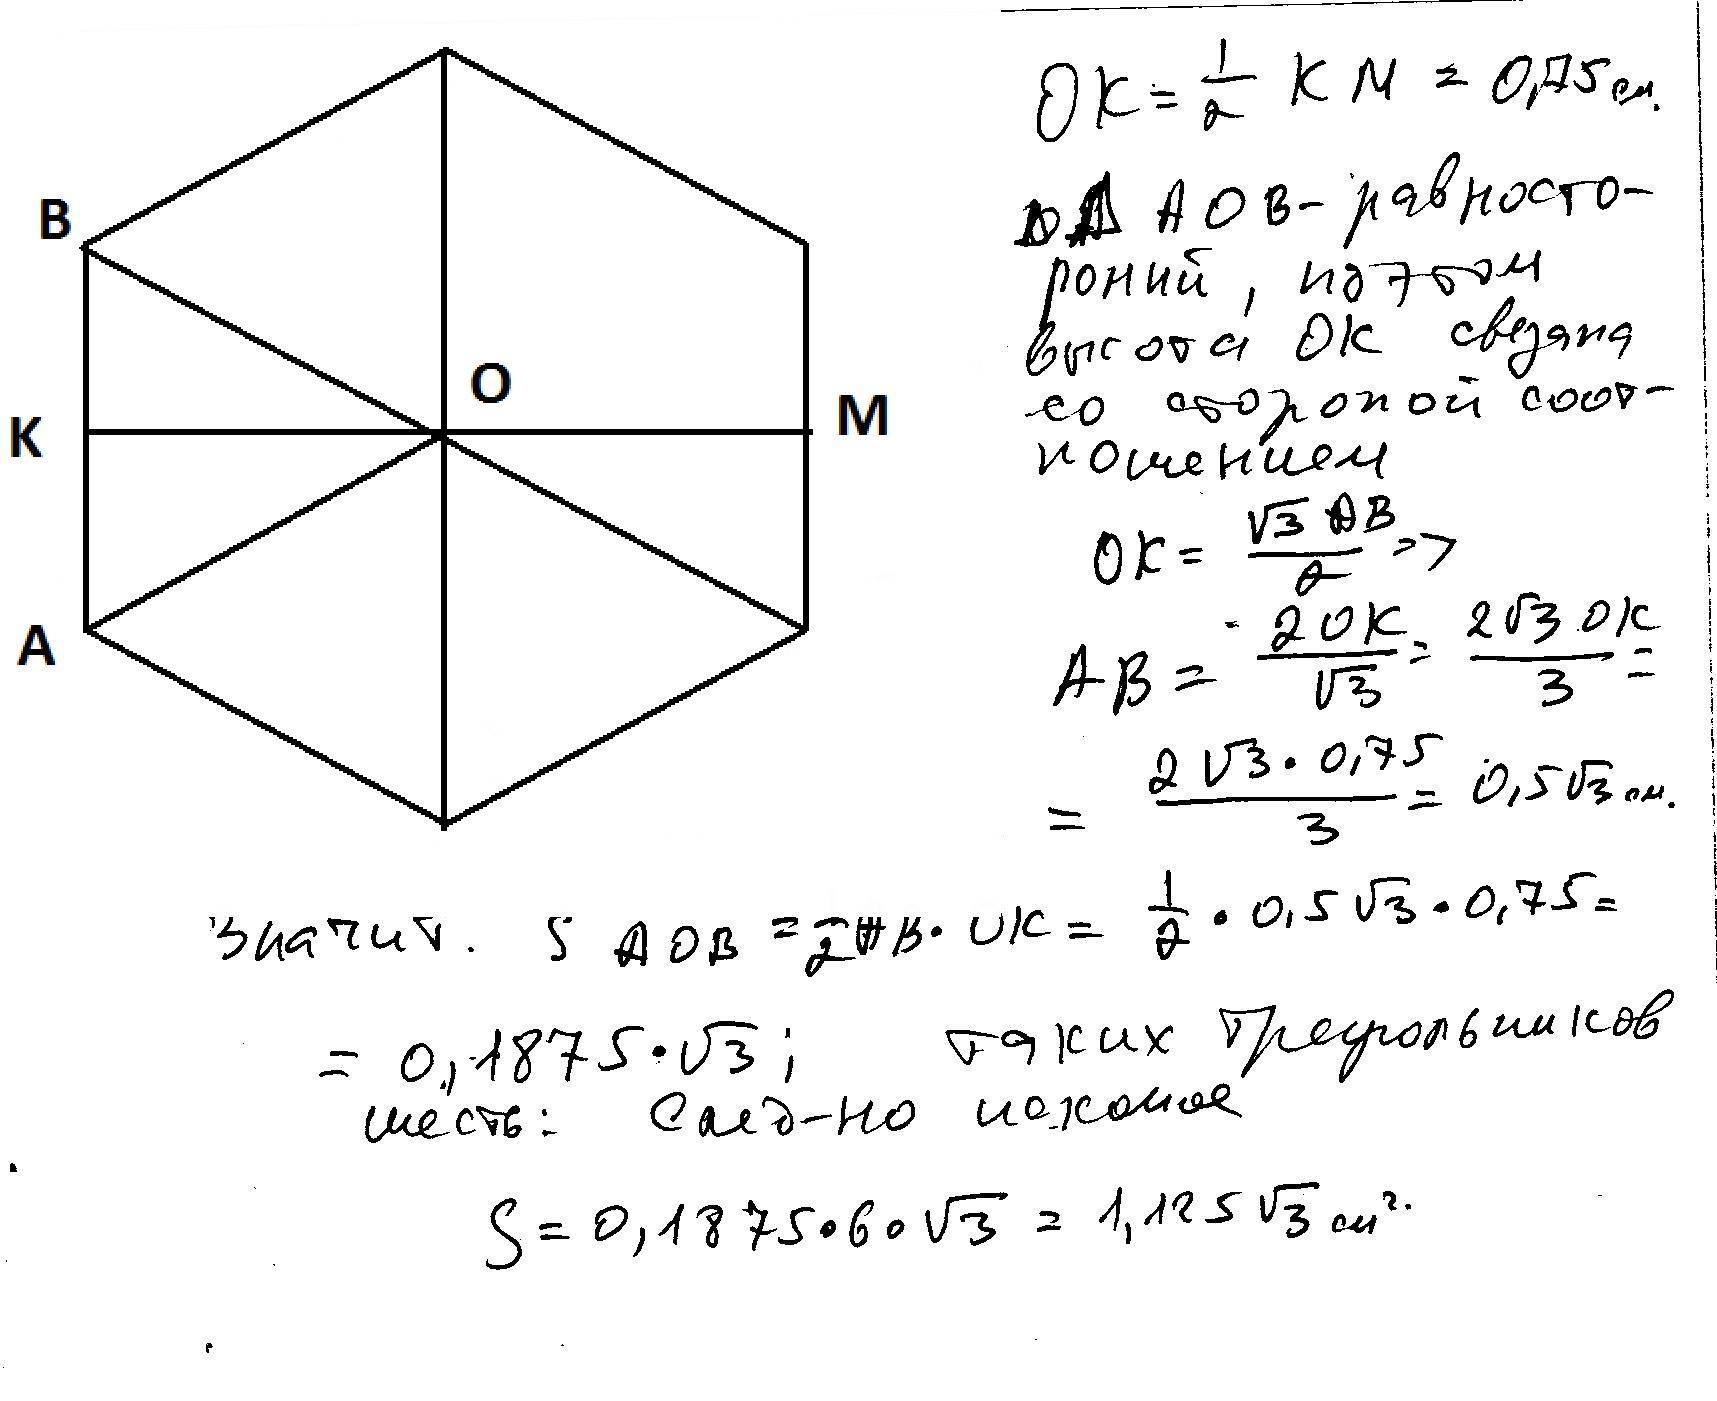 B
K
O
M
A
OK = 1/2 KM = 0,75 см.
Δ AOB - равносто-
роний, поэтом
высота OK связана
со стороной соот-
ношением
OK = √3 AB / 2 =>
AB = 2 OK / √3 = 2√3 OK / 3 =
= 2√3 · 0,75 / 3 = 0,5√3 см.
Значит. S AOB = 1/2 AB · OK = 1/2 · 0,5√3 · 0,75 =
= 0,1875 · √3; таких треугольников
шесть: След-но искомое
S = 0,1875 · 6 · √3 = 1,125√3 см².